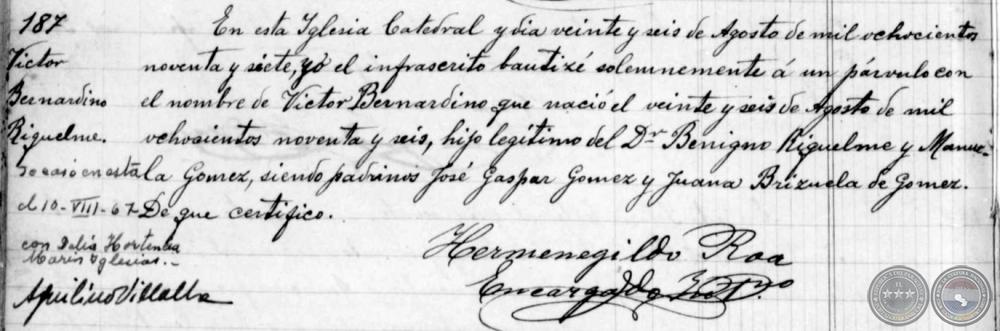 187
Victor
Bernardino
Riquelme.
Se casó en esta
el 10-VIII-67
con Delia Hortensia
Marin Iglesias.-
Aquilino Villalba
En esta Iglesia Catedral y dia veinte y seis de Agosto de mil ochocientos
noventa y siete, yo el infrascrito bautizé solemnemente á un párvulo con
el nombre de Victor Bernardino que nació el veinte y seis de Agosto de mil
ochosientos noventa y seis, hijo legítimo del Dr Benigno Riquelme y Manue-
la Gomez, siendo padrinos José Gaspar Gomez y Juana Brizuela de Gomez.
De que certifico.
Hermenegildo Roa
Encargado